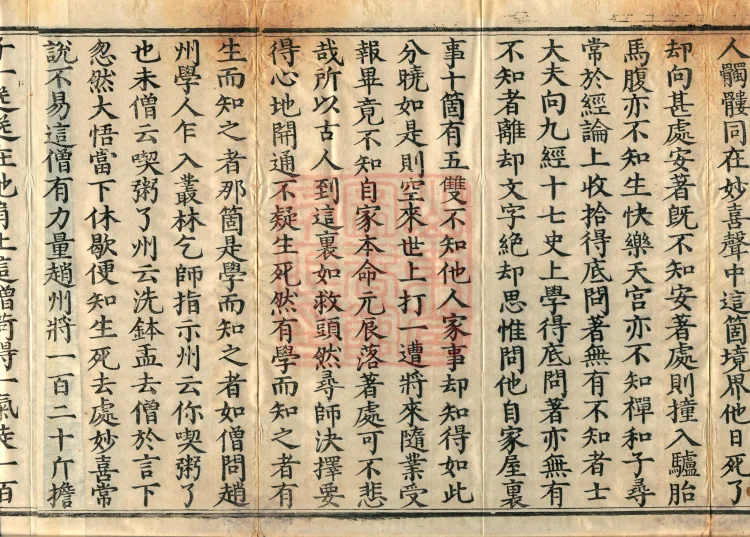 人髑髏同在妙喜聲中這箇境界他日死了
却向甚處安著旣不知安著處則撞入驢胎
馬腹亦不知生快樂天宮亦不知禪和子尋
常於經論上收拾得底問著無有不知者士
大夫向九經十七史上學得底問著亦無有
不知者離却文字絕却思惟問他自家屋裏
事十箇有五雙不知他人家事却知得如此
分曉如是則空來世上打一遭將來隨業受
報畢竟不知自家本命元辰落著處可不悲
哉所以古人到這裏如救頭然尋師決擇要
得心地開通不疑生死然有學而知之者有
生而知之者那箇是學而知之者如僧問趙
州學人乍入叢林乞師指示州云你喫粥了
也未僧云喫粥了州云洗鉢盂去僧於言下
忽然大悟當下休歇便知生死去處妙喜常
說不易這僧有力量趙州將一百二十斤擔
子一送送在他肩上這僧荷得一氣走一百